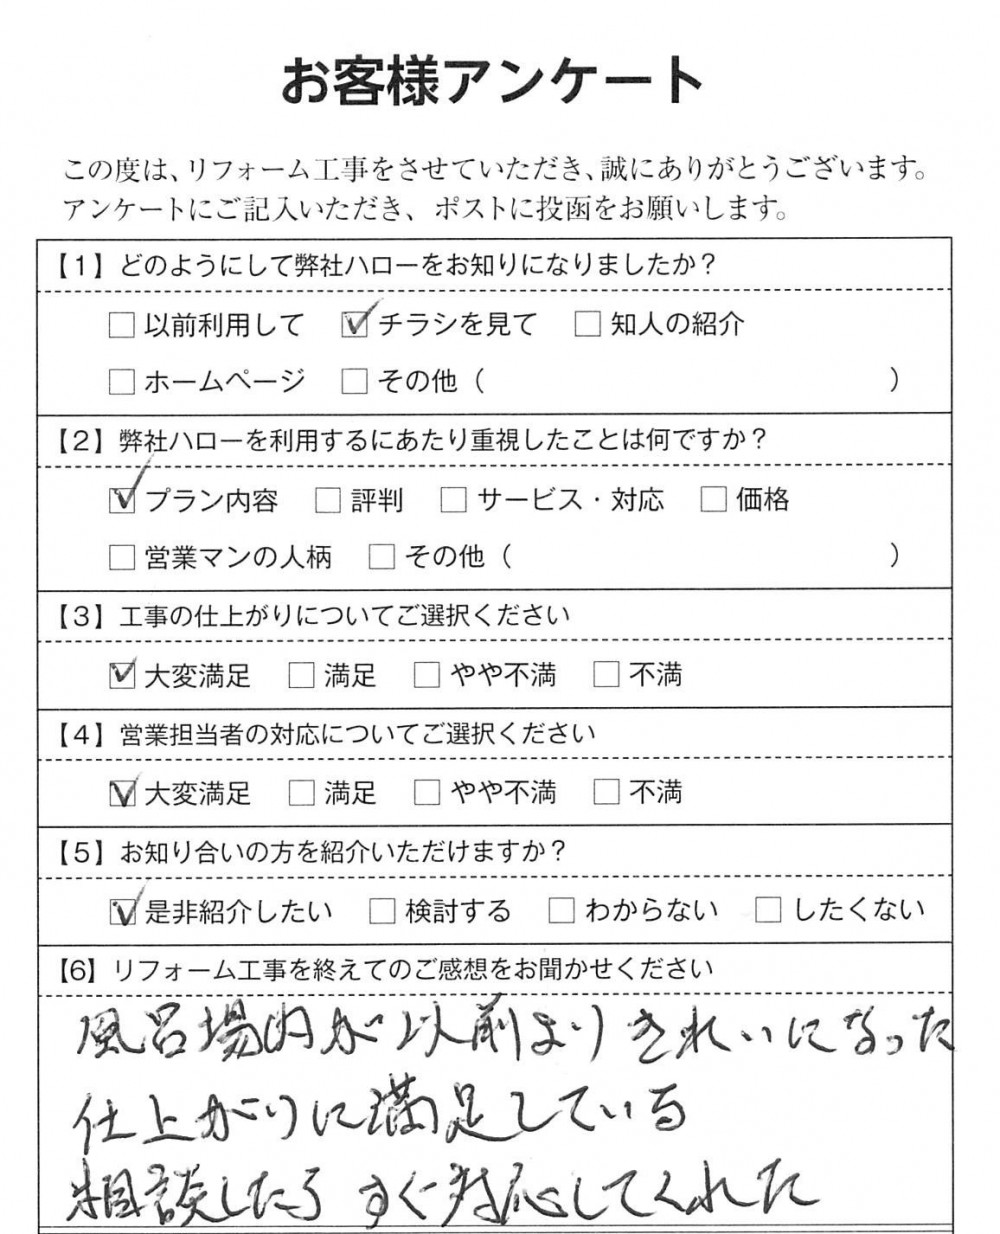 お客様アンケート
この度は、リフォーム工事をさせていただき、誠にありがとうございます。
アンケートにご記入いただき、ポストに投函をお願いします。
【1】どのようにして弊社ハローをお知りになりましたか？
□ 以前利用して ☑ チラシを見て □ 知人の紹介
□ ホームページ □ その他（ ）
【2】弊社ハローを利用するにあたり重視したことは何ですか？
☑ プラン内容 □ 評判 □ サービス・対応 □ 価格
□ 営業マンの人柄 □ その他（ ）
【3】工事の仕上がりについてご選択ください
☑ 大変満足 □ 満足 □ やや不満 □ 不満
【4】営業担当者の対応についてご選択ください
☑ 大変満足 □ 満足 □ やや不満 □ 不満
【5】お知り合いの方を紹介いただけますか？
☑ 是非紹介したい □ 検討する □ わからない □ したくない
【6】リフォーム工事を終えてのご感想をお聞かせください
風呂場内が以前よりきれいになった
仕上がりに満足している
相談したらすぐ対応してくれた